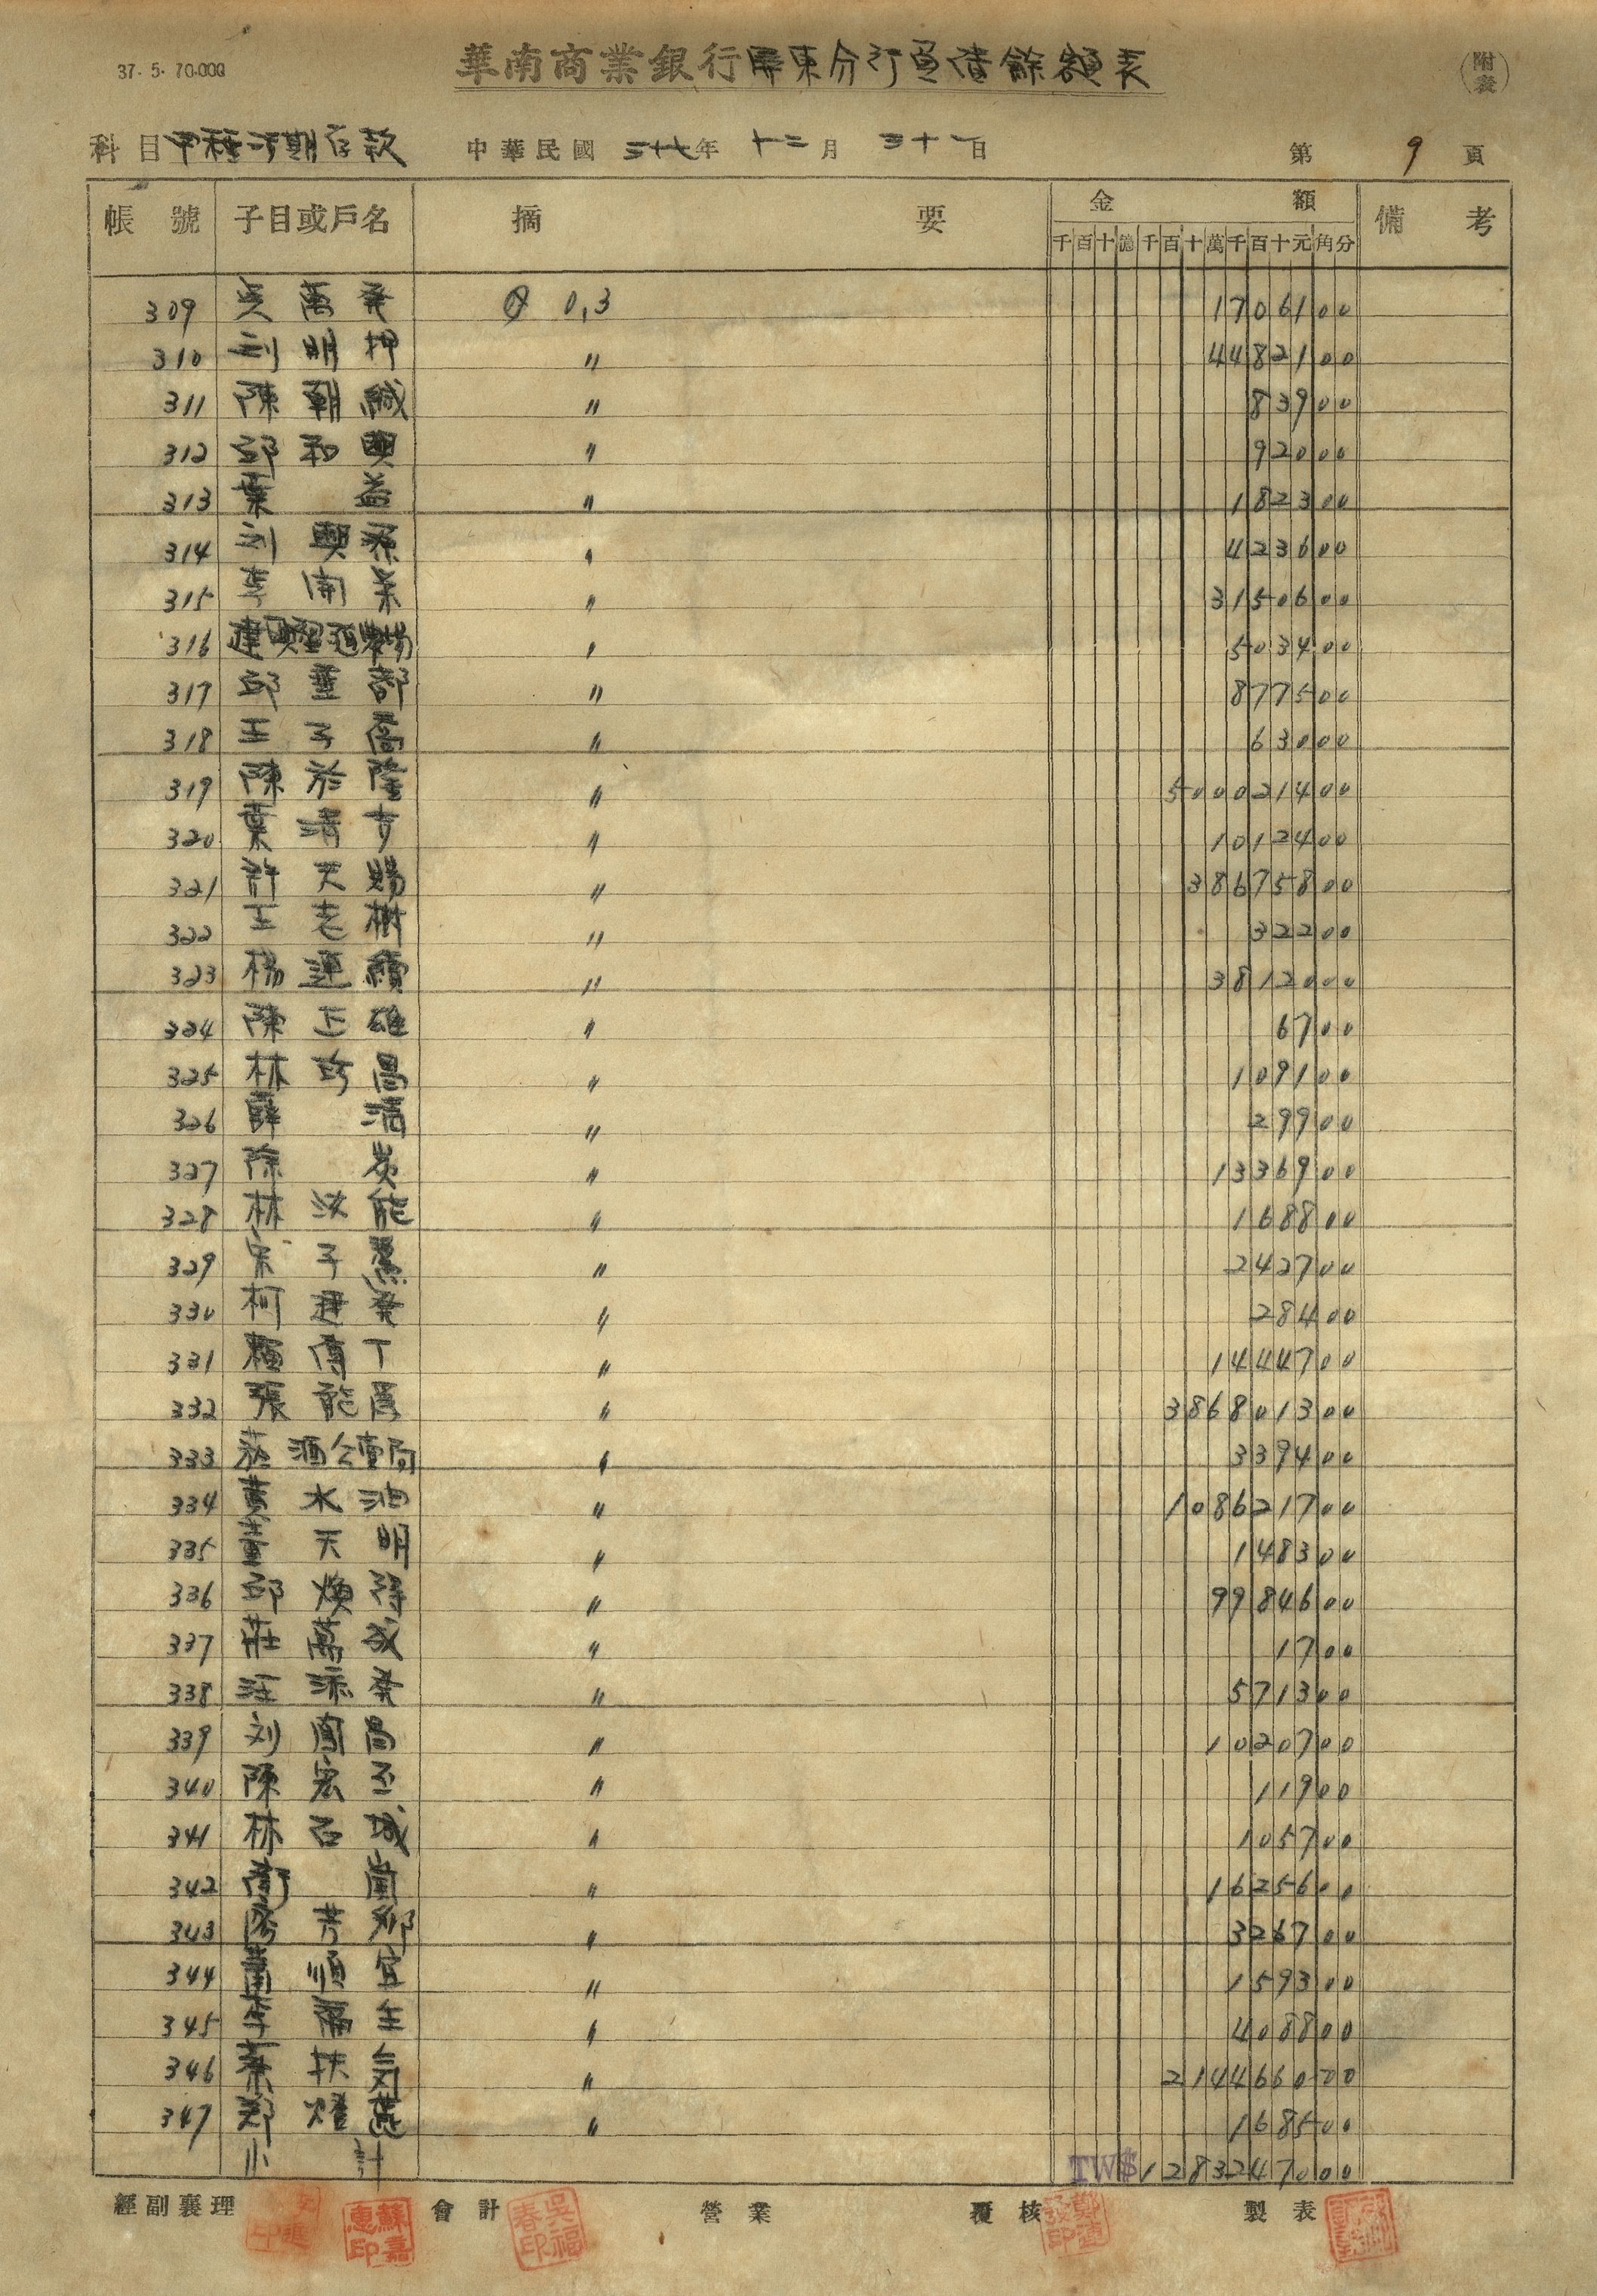 37. 5. 70.000
華南商業銀行屏東分行負債餘額表
(附表)
科目 甲種活期存款 中華民國 三十七年 十二月 三十一日 第 9 頁
帳號 子目或戶名 摘要 金額 備考
千百十億千百十萬千百十元角分
309 吳萬發 @ 0,3 17061 00
310 刘明押 〃 44821 00
311 陳朝鹹 〃 839 00
312 邱和興 〃 920 00
313 葉益 〃 1823 00
314 刘興源 〃 4236 00
315 李開 〃 31506 00
316 建興 〃 5034 00
317 邱 部 〃 8775 00
318 王子 〃 630 00
319 陳於隆 〃 5000214 00
320 葉清 〃 10124 00
321 許天賜 〃 386758 00
322 王老樹 〃 322 00
323 楊運續 〃 38120 00
324 陳正雄 〃 67 00
325 林 昌 〃 1091 00
326 薛清 〃 299 00
327 除炭 〃 13369 00
328 林 能 〃 1688 00
329 宋子 〃 2427 00
330 柯 發 〃 284 00
331 傳丁 〃 14447 00
332 張能 〃 3868013 00
333 菸酒公賣局 〃 3394 00
334 黄水油 〃 1086217 00
335 董天明 〃 1483 00
336 邱煥得 〃 99846 00
337 莊萬成 〃 17 00
338 汪添發 〃 5713 00
339 刘鳳昌 〃 10207 00
340 陳宏丕 〃 119 00
341 林石城 〃 1057 00
342 蘭 〃 16256 00
343 芳 〃 3267 00
344 蕭順宜 〃 1593 00
345 李福生 〃 4088 00
346 扶 〃 2144660 00
347 鄭燈 〃 1685 00
小計 TW$ 12832470 00
經副襄理 會計 營業 覆核 製表
蘇嘉惠印
吳福春印